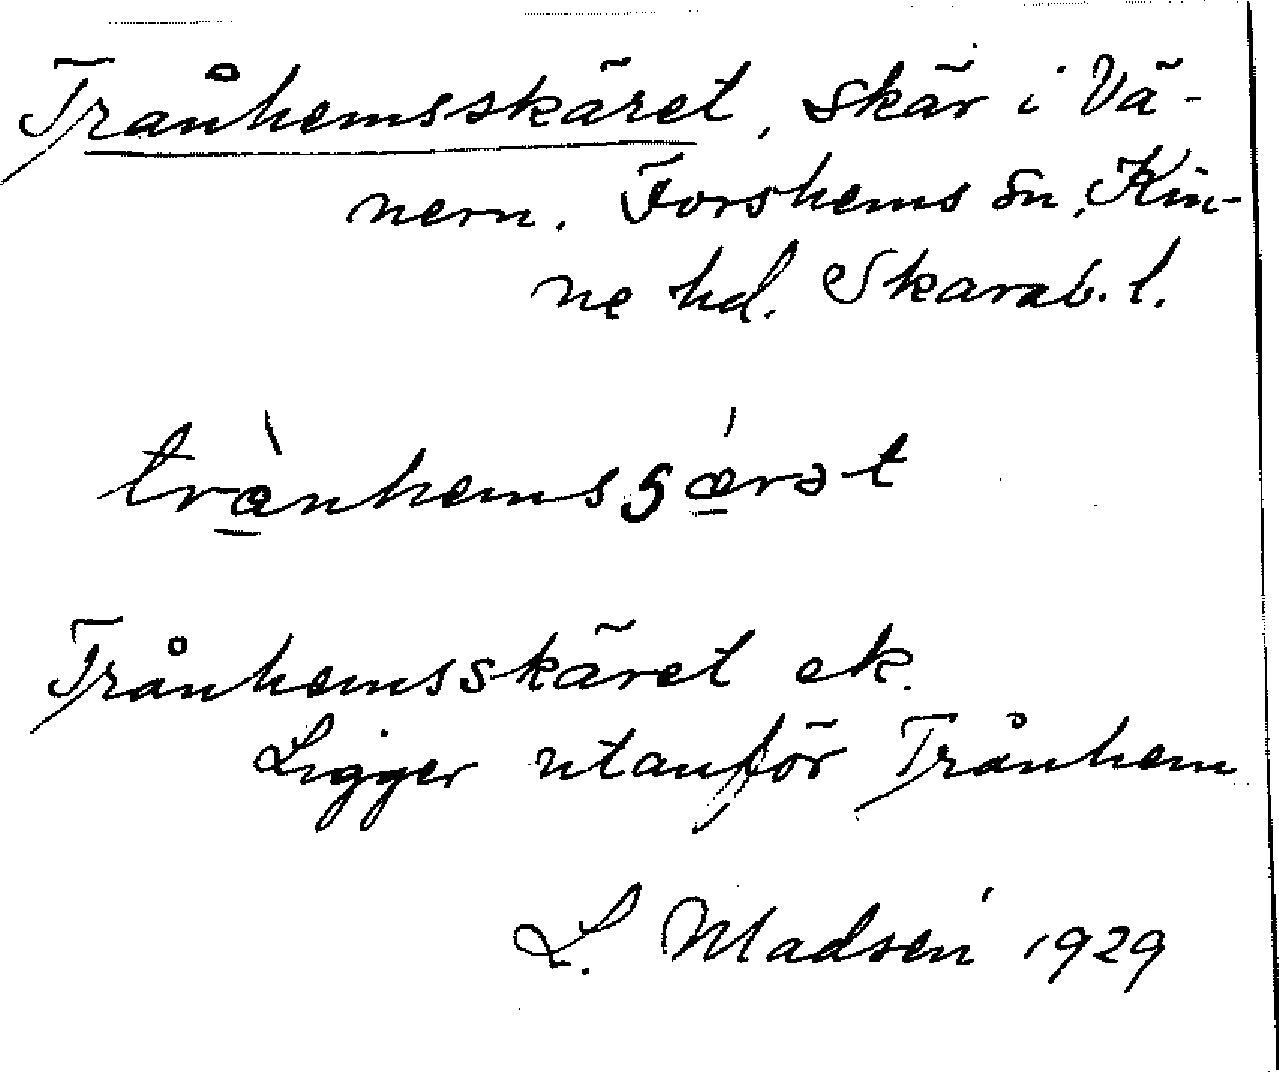 Trånhemsskäret, skär i Vä-
nern. Forshems sn, Kin-
ne hd. Skarab. l.
trànhemsʂǽrət
Trånhemsskäret ek.
Ligger utanför Trånhem
L. Madsén 1929